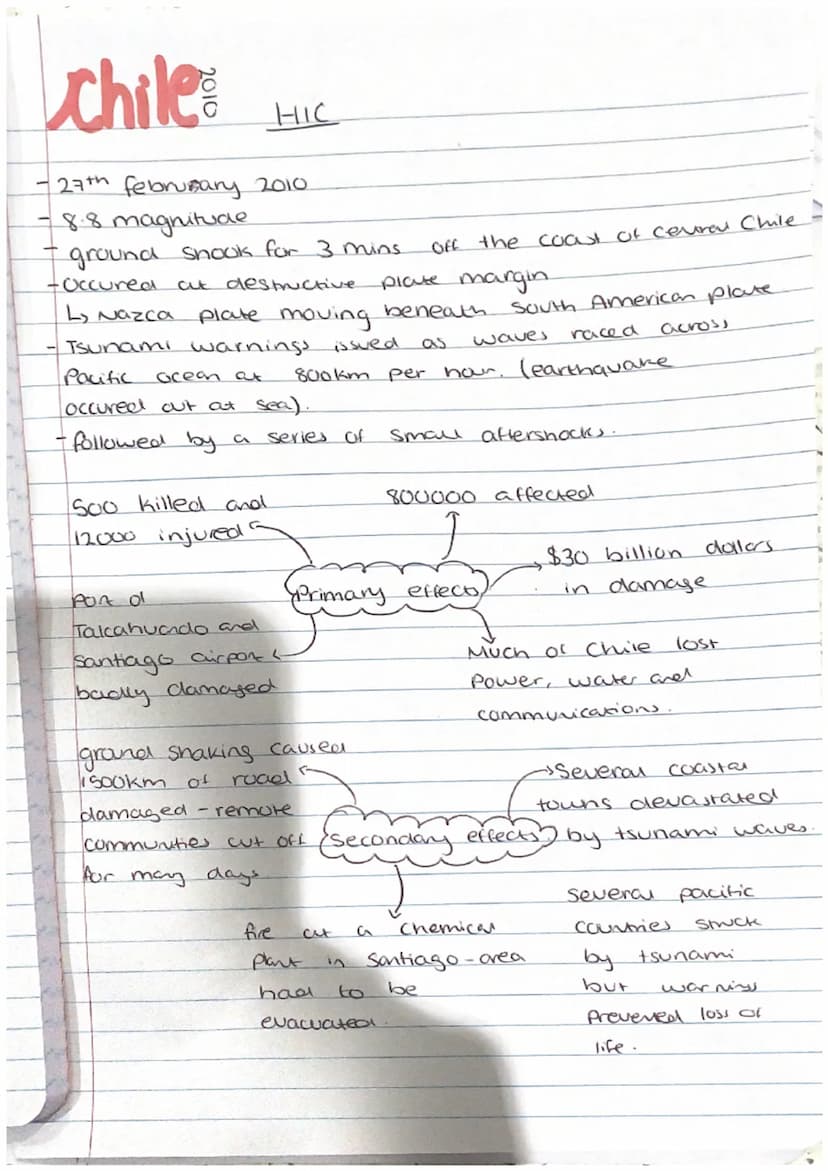 Chile 2010 HIC
- 27th february 2010
- 8.8 magnitude
- ground shook for 3 mins off the coast of central Chile
- Occured at destructive plate margin
↳ Nazca plate moving beneath South American plate
- Tsunami warnings issued as waves raced across
Pacific ocean at 800km per hour. (earthquake
occured out at sea).
- followed by a series of small aftershocks.
500 killed and
12000 injured
800000 affected
Primary effects
$30 billion dollars
in damage
Port of
Talcahuando and
Santiago airport
badly damaged
Much of Chile lost
Power, water and
communications.
ground shaking caused
1500km of road
damaged - remote
communities cut off
for many days
Secondary effects
Several coastal
towns devastated
by tsunami waves.
fire at a chemical
plant in Santiago - area
had to be
evacuated.
Several pacific
countries struck
by tsunami
but warnings
Prevened loss of
life.